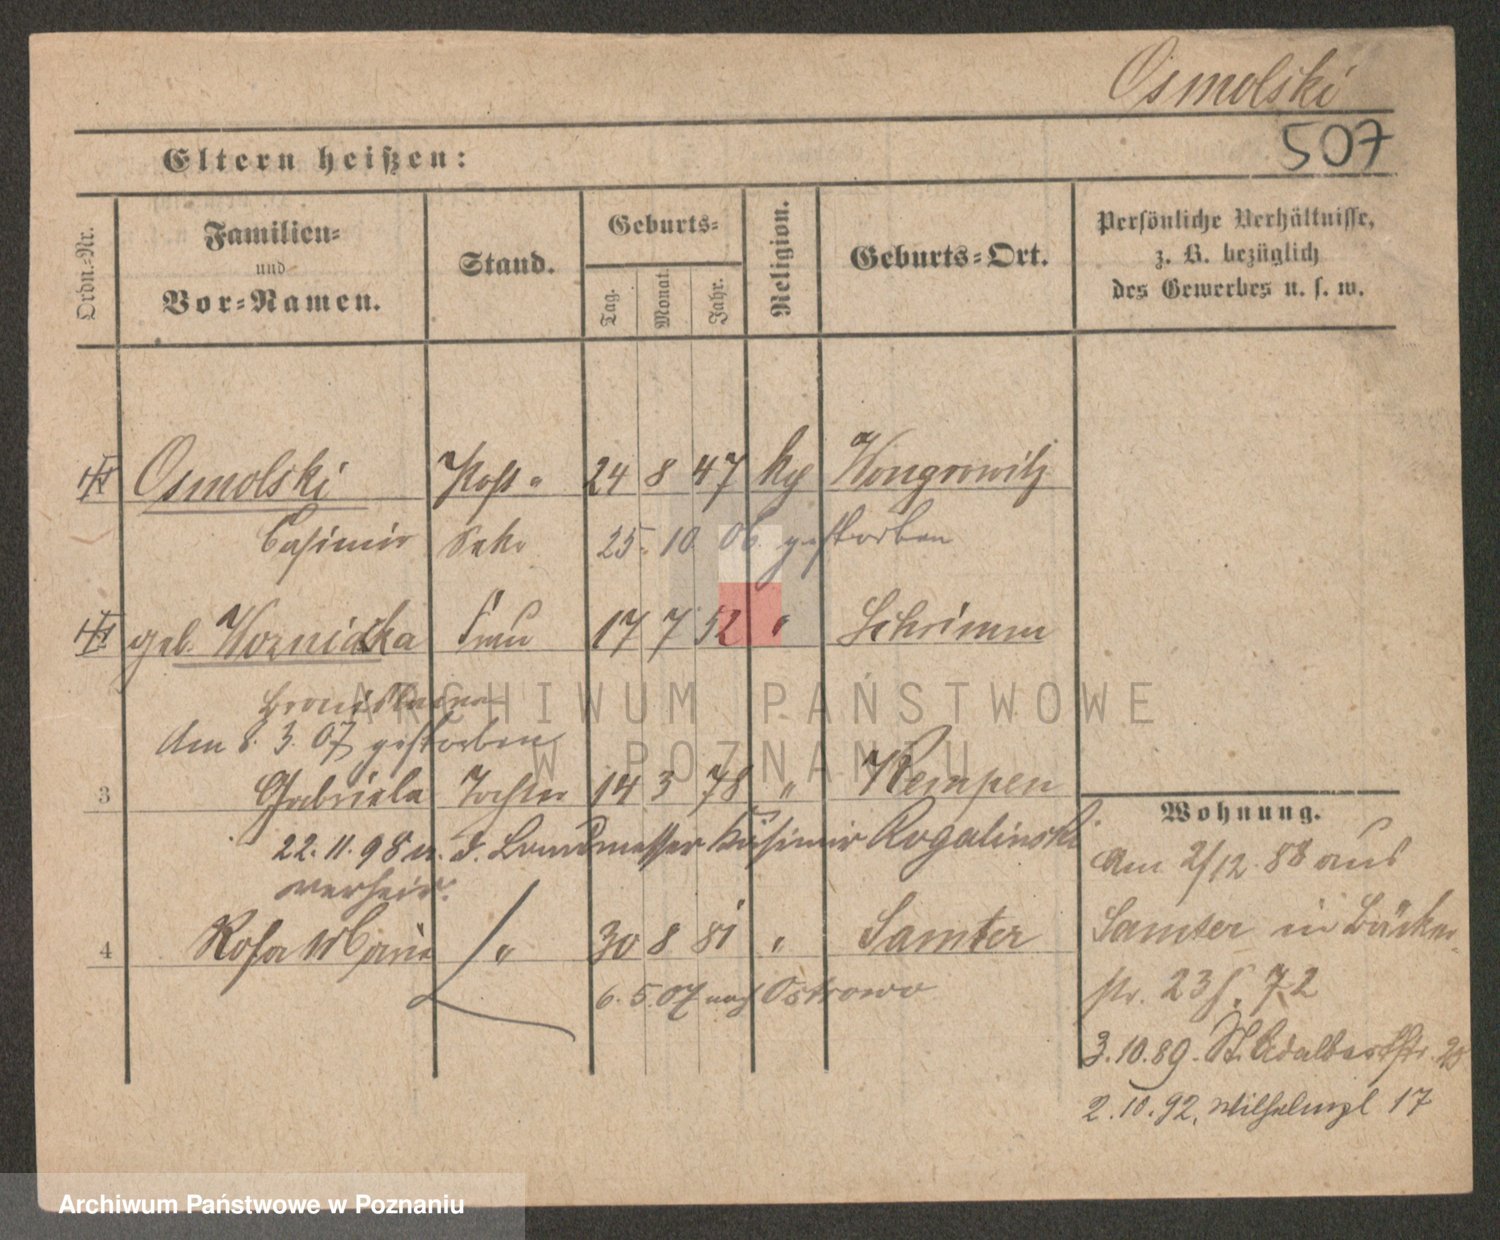 Osmolski
507
Eltern heißen:
Ordn.-Nr.
Familien-
und
Vor-Namen.
Stand.
Geburts-
Tag.
Monat.
Jahr.
Religion.
Geburts-Ort.
Persönliche Verhältnisse,
z. B. bezüglich
des Gewerbes u. s. w.
Osmolski Post- 24 8 47 Wongrowitz
Casimir Sekr 25. 10 06. gestorben
geb. Wozniacka Frau 17 7 52 " Schrimm
Am 8. 3. 07 gestorben
3 Gabriela Tochter 14 3 78 " Kempen
22. 11. 98 m. d. Landmesser Kasimir Rogalinski
verheir.
4 Rosa Marie " 30 8 81 " Samter
6. 5. 07 nach Ostrowo
Wohnung.
Am 2/12. 88 aus
Samter in Bäcker-
str. 23 72
3. 10. 89. St. Adalbertstr.
2. 10. 92. Wilhelmpl 17
ARCHIWUM PAŃSTWOWE
W POZNANIU
Archiwum Państwowe w Poznaniu